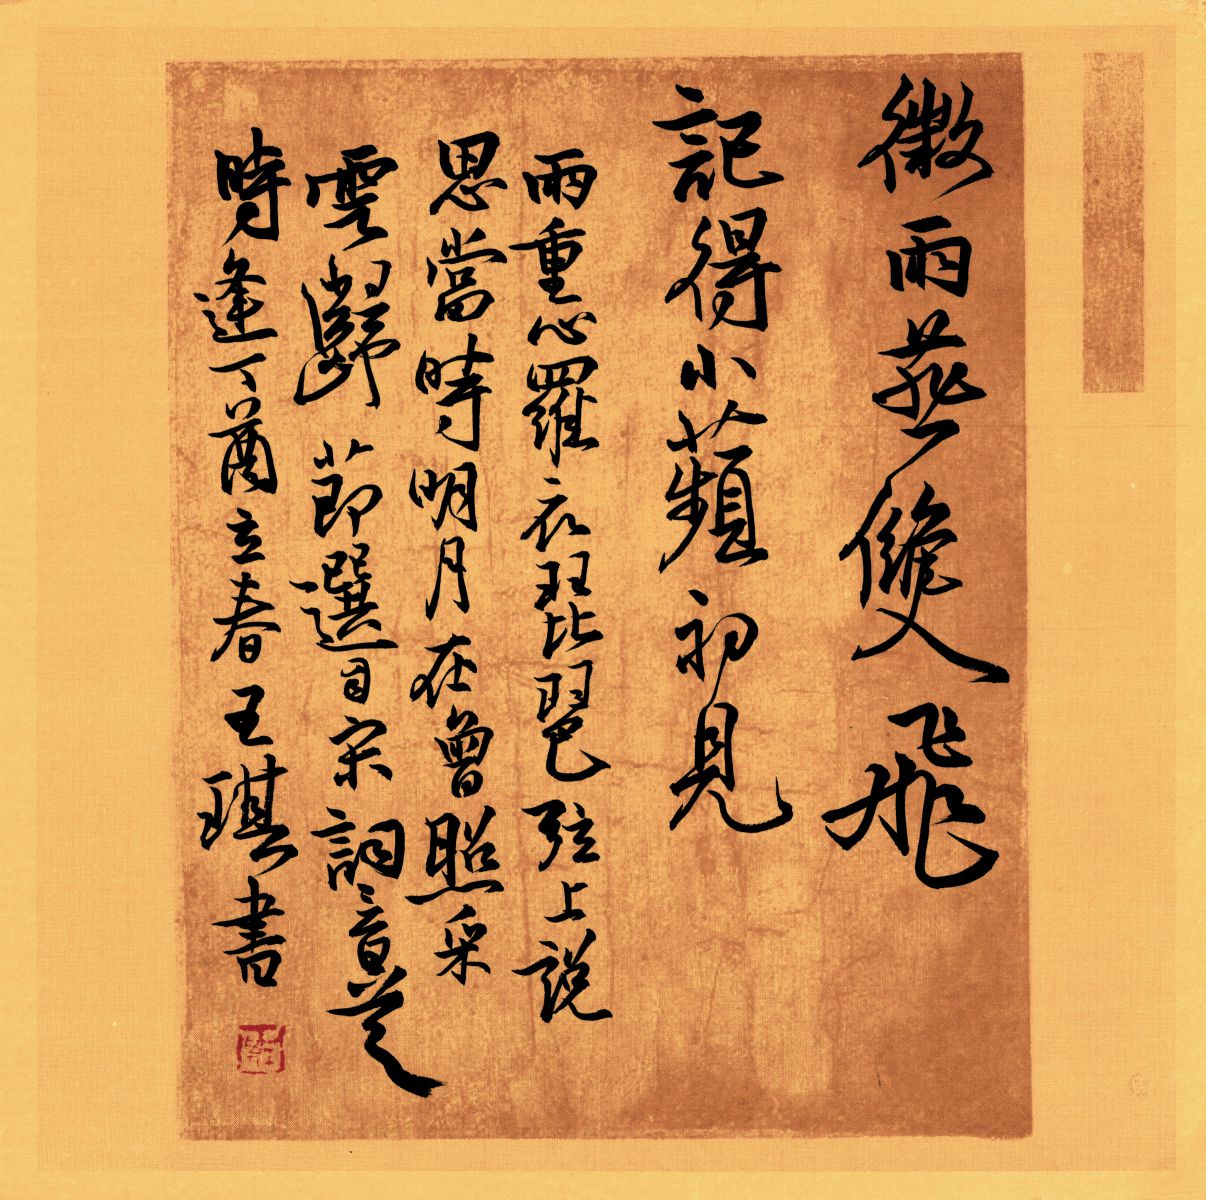 微雨燕雙飛
記得小蘋初見
兩重心羅衣琵琶弦上説
思當時明月在曾照采
雲歸 節選自宋詞意是
時逢丁酉立春王琪書